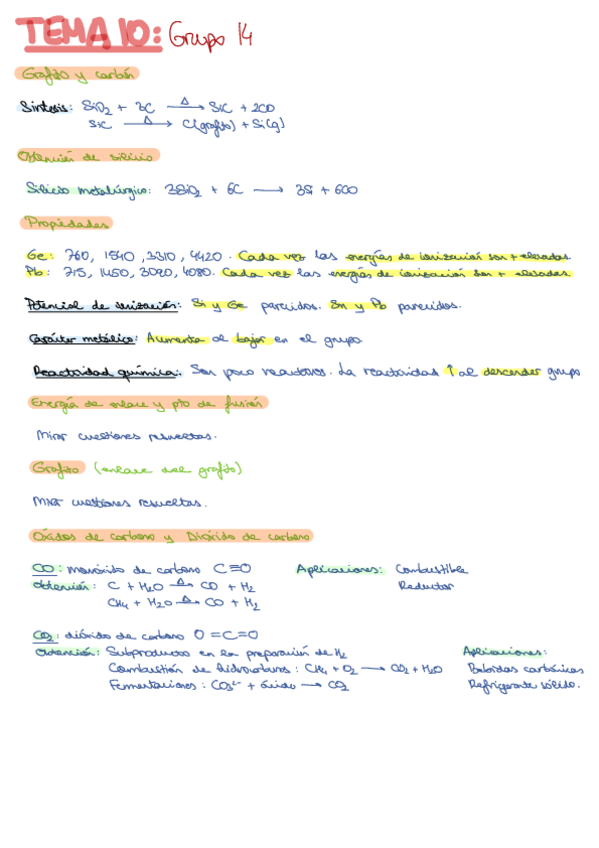 TEMA 10: Grupo 14
Grafito y carbón
Síntesis: SiO2 + 3C —Δ→ SiC + 2CO
SiC —Δ→ C(grafito) + Si(g)
Obtención de silicio
Silicio metalúrgico: 3SiO2 + 6C → 3Si + 6CO
Propiedades
Ge: 760, 1540, 3310, 4420. Cada vez las energías de ionización son + elevadas.
Pb: 715, 1450, 3090, 4080. Cada vez las energías de ionización son + elevadas.
Potencial de ionización: Si y Ge parecidos. Sn y Pb parecidos.
Carácter metálico: Aumenta al bajar en el grupo
Reactividad química: Son poco reactivos. La reactividad ↑ al descender grupo
Energía de enlace y pto de fusión
Mirar cuestiones resueltas.
Grafito (enlace del grafito)
Mirar cuestiones resueltas.
Óxidos de carbono y Dióxido de carbono
CO: monóxido de carbono C≡O Aplicaciones: Combustible
Obtención: C + H2O —Δ→ CO + H2 Reductor
CH4 + H2O —Δ→ CO + H2
CO2: dióxido de carbono O=C=O
Obtención: Subproductos en la preparación de H2 Aplicaciones:
Combustión de hidrocarburos: CH4 + O2 → CO2 + H2O Bebidas carbónicas
Fermentaciones: CO3²⁻ + ácido → CO2 Refrigerante sólido.